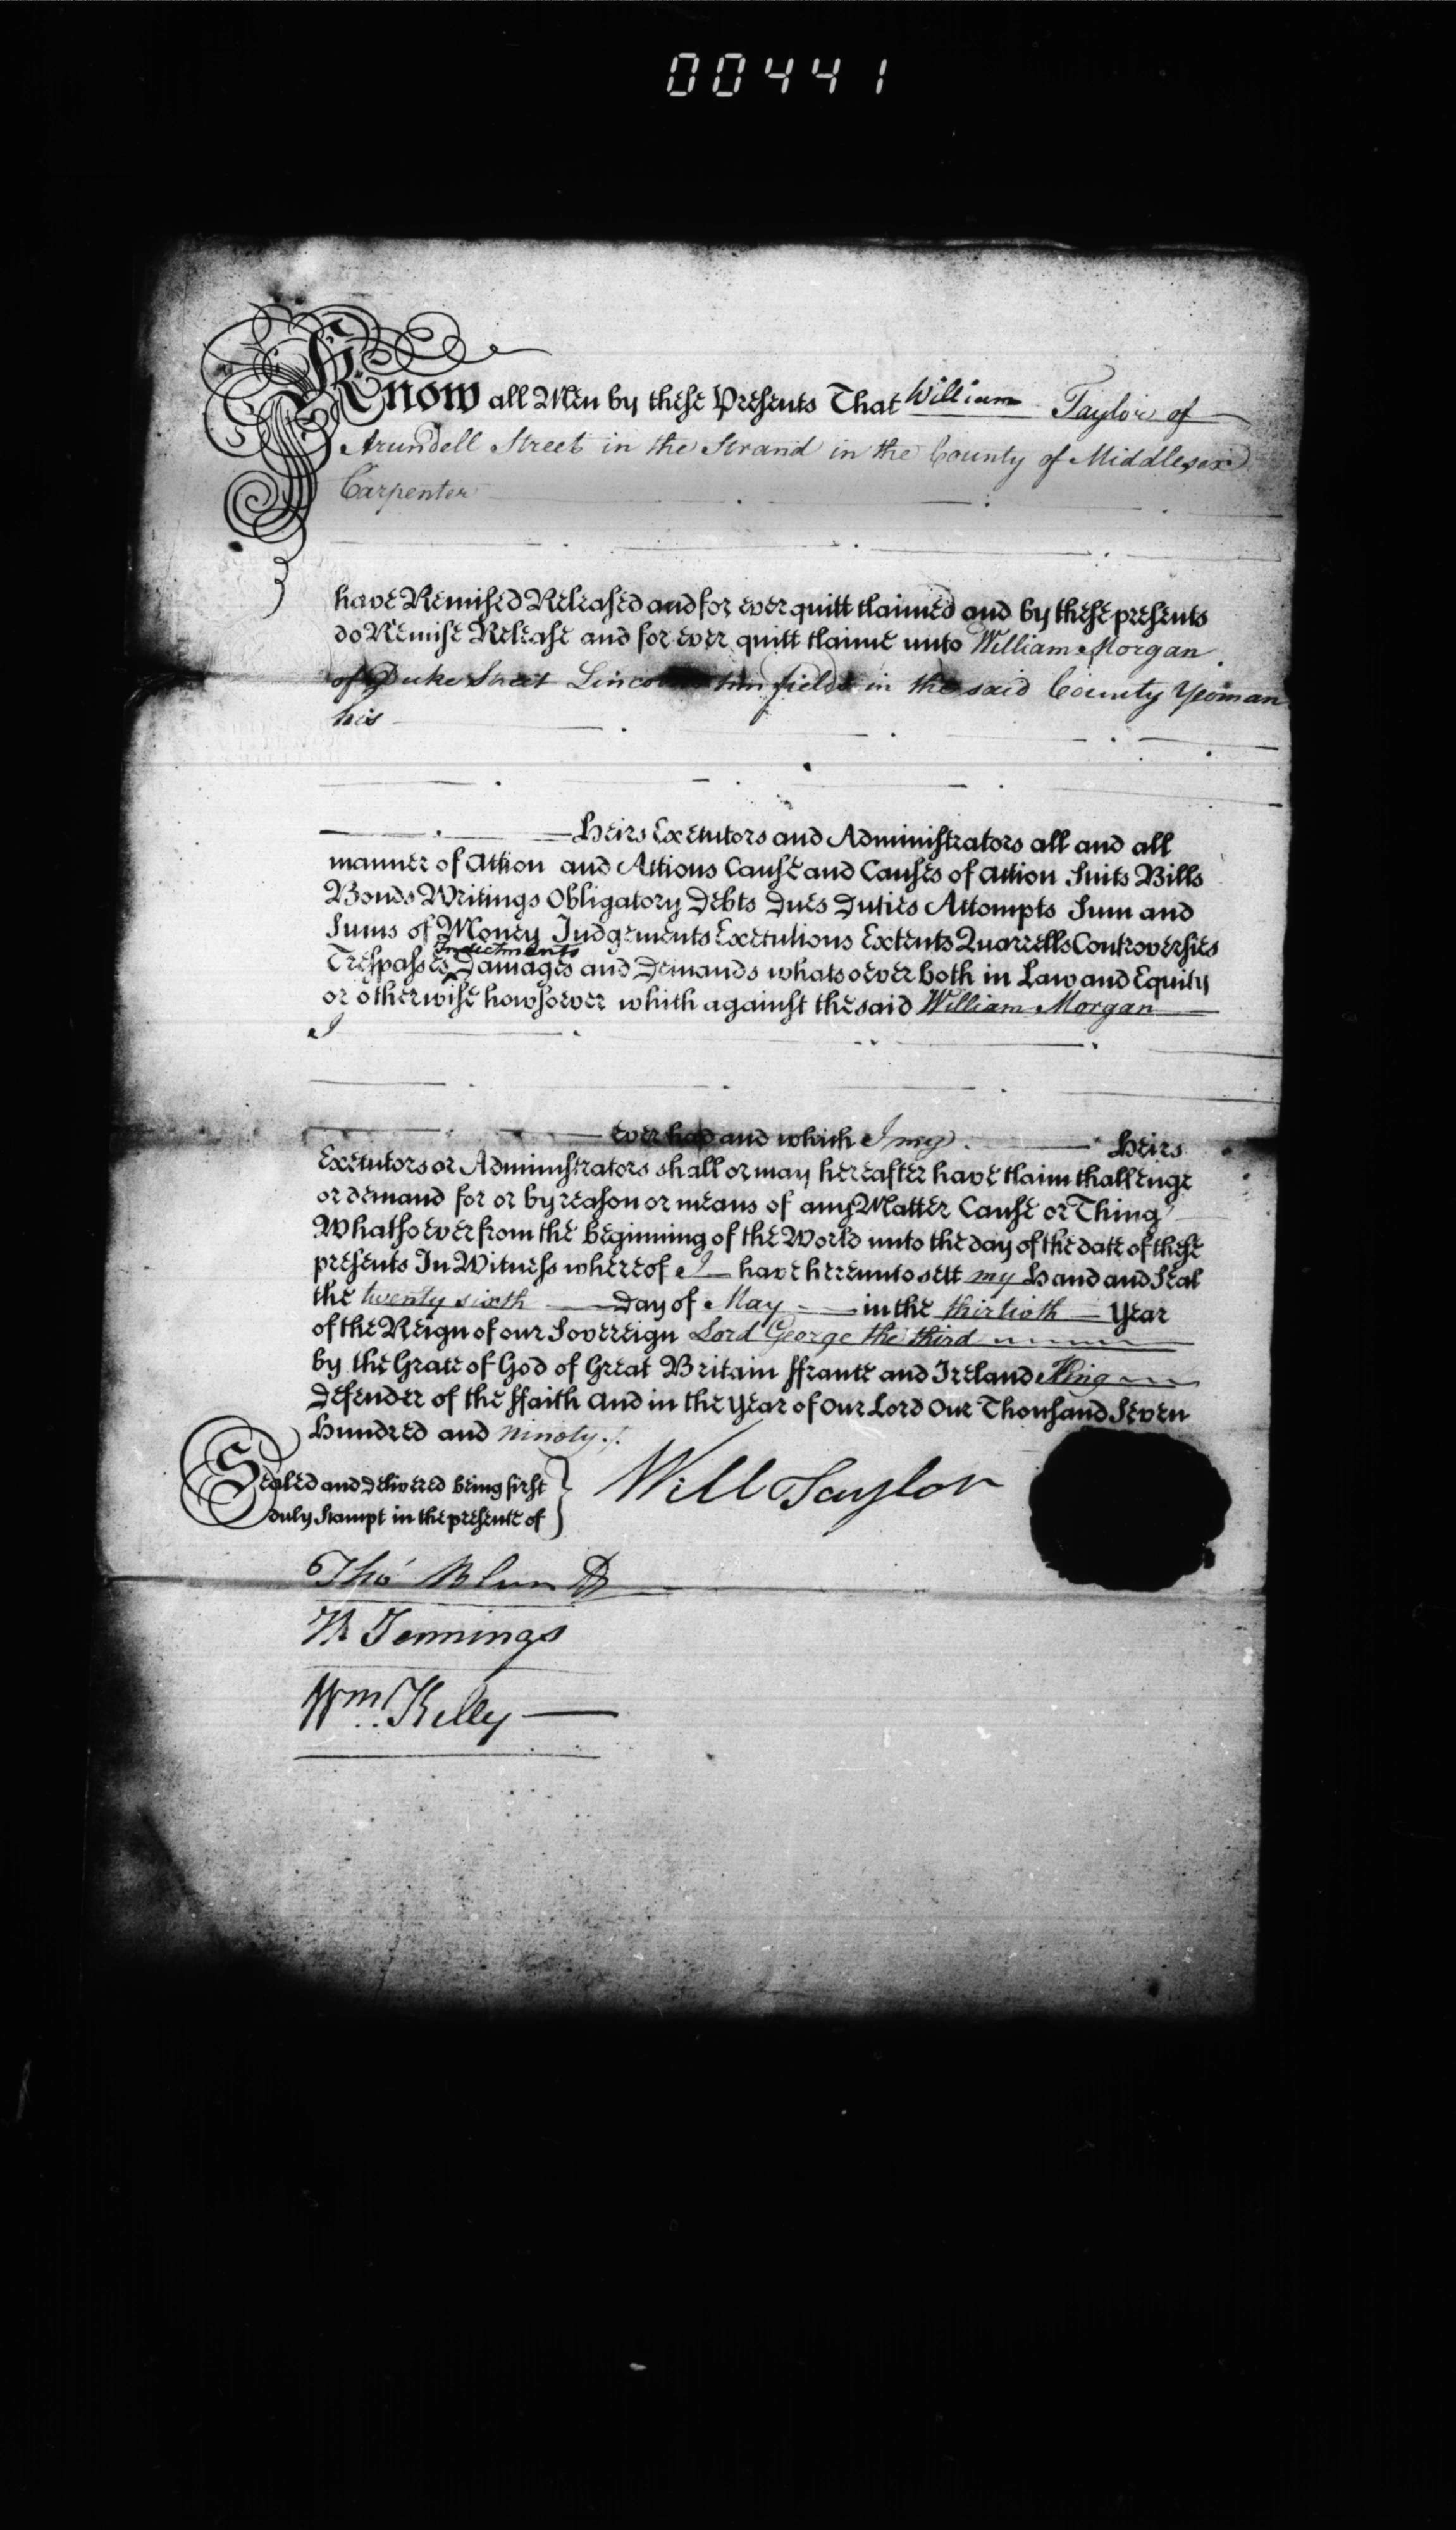 00441
Know all Men by these Presents That William Taylor of
Arundell Street in the Strand in the County of Middlesex
Carpenter
have Remised Released and for ever quitt claimed and by these presents
do Remise Release and for ever quitt claime unto William Morgan
of Duke Street Lincolns Inn fields in the said County Yeoman
his
Heirs Executors and Administrators all and all
manner of Action and Actions Cause and Causes of Action Suits Bills
Bonds Writings Obligatory Debts Dues Duties Attompts Sum and
Sums of Money Judgements Executions Extents Quarrells Controversies
Indictments
Trespasses Damages and Demands whatsoever both in Law and Equity
or otherwise howsoever which against the said William Morgan
I
ever had and which I my Heirs
Executors or Administrators shall or may hereafter have claim challenge
or demand for or by reason or means of any Matter Cause or Thing
Whatsoever from the beginning of the World unto the day of the date of these
presents In Witness whereof I have hereunto sett my Hand and Seal
the twenty sixth Day of May in the thirtieth Year
of the Reign of our Sovereign Lord George the third
by the Grace of God of Great Britain ffrance and Ireland King
Defender of the ffaith And in the Year of Our Lord One Thousand Seven
Hundred and ninety
Sealed and delivered being first
duly Stampt in the presence of
Will Taylor
Thos Blunt
W Jennings
Wm. Kelly